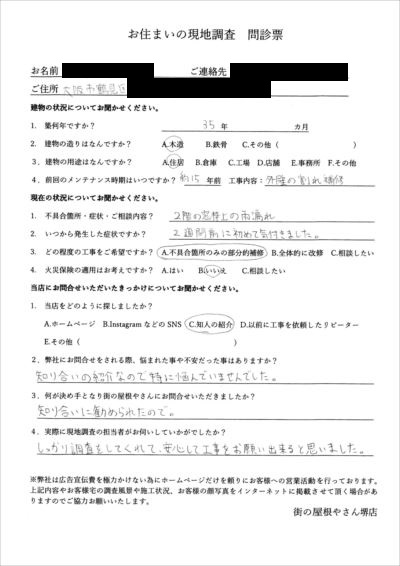 お住まいの現地調査　問診票
お名前　ご連絡先
ご住所　大阪市鶴見区
建物の状況についてお聞かせください。
1．築何年ですか？　35 年　カ月
2．建物の造りはなんですか？　A.木造　B.鉄骨　C.その他（　）
3．建物の用途はなんですか？　A.住居　B.倉庫　C.工場　D.店舗　E.事務所　F.その他
4．前回のメンテナンス時期はいつですか？　約15 年前　工事内容：外壁の割れ補修
現在の状況についてお聞かせください。
1．不具合箇所・症状・ご相談内容？　2階の窓枠上の雨漏れ
2．いつから発生した症状ですか？　2週間前に初めて気付きました。
3．どの程度の工事をご希望ですか？　A.不具合箇所のみの部分的補修　B.全体的に改修　C.相談したい
4．火災保険の適用はお考えですか？　A.はい　B.いいえ　C.相談したい
当店にお問合せいただいたきっかけについてお聞かせください。
1．当店をどのように探しましたか？
A.ホームページ　B.Instagram などの SNS　C.知人の紹介　D.以前に工事を依頼したリピーター
E.その他（　）
2．弊社にお問合せをされる際、悩まれた事や不安だった事はありますか？
知り合いの紹介なので特に悩んでいませんでした。
3．何が決め手となり街の屋根やさんにお問合せいただきましたか？
知り合いに勧められたので。
4．実際に現地調査の担当者がお伺いしていかがでしたか？
しっかり調査をしてくれて、安心して工事をお願い出来ると思いました。
※弊社は広告宣伝費を極力かけない為にホームページだけを頼りにお客様への営業活動を行っております。
上記内容やお客様宅の調査風景や施工状況、お客様の顔写真をインターネットに掲載させて頂く場合があり
ますのでご協力お願いいたします。
街の屋根やさん堺店